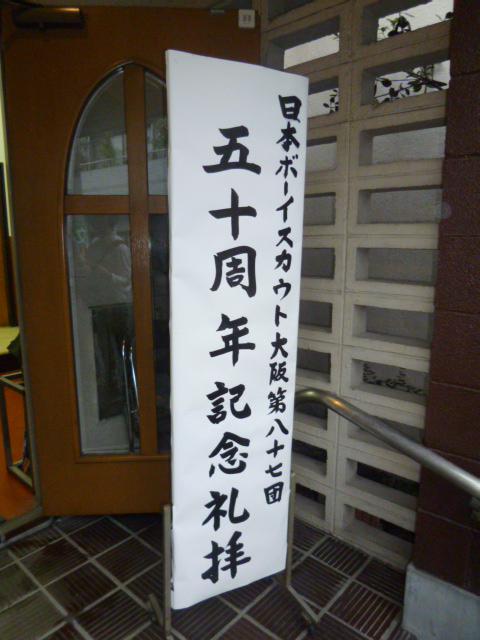 日本ボーイスカウト大阪第八十七団
五十周年記念礼拝